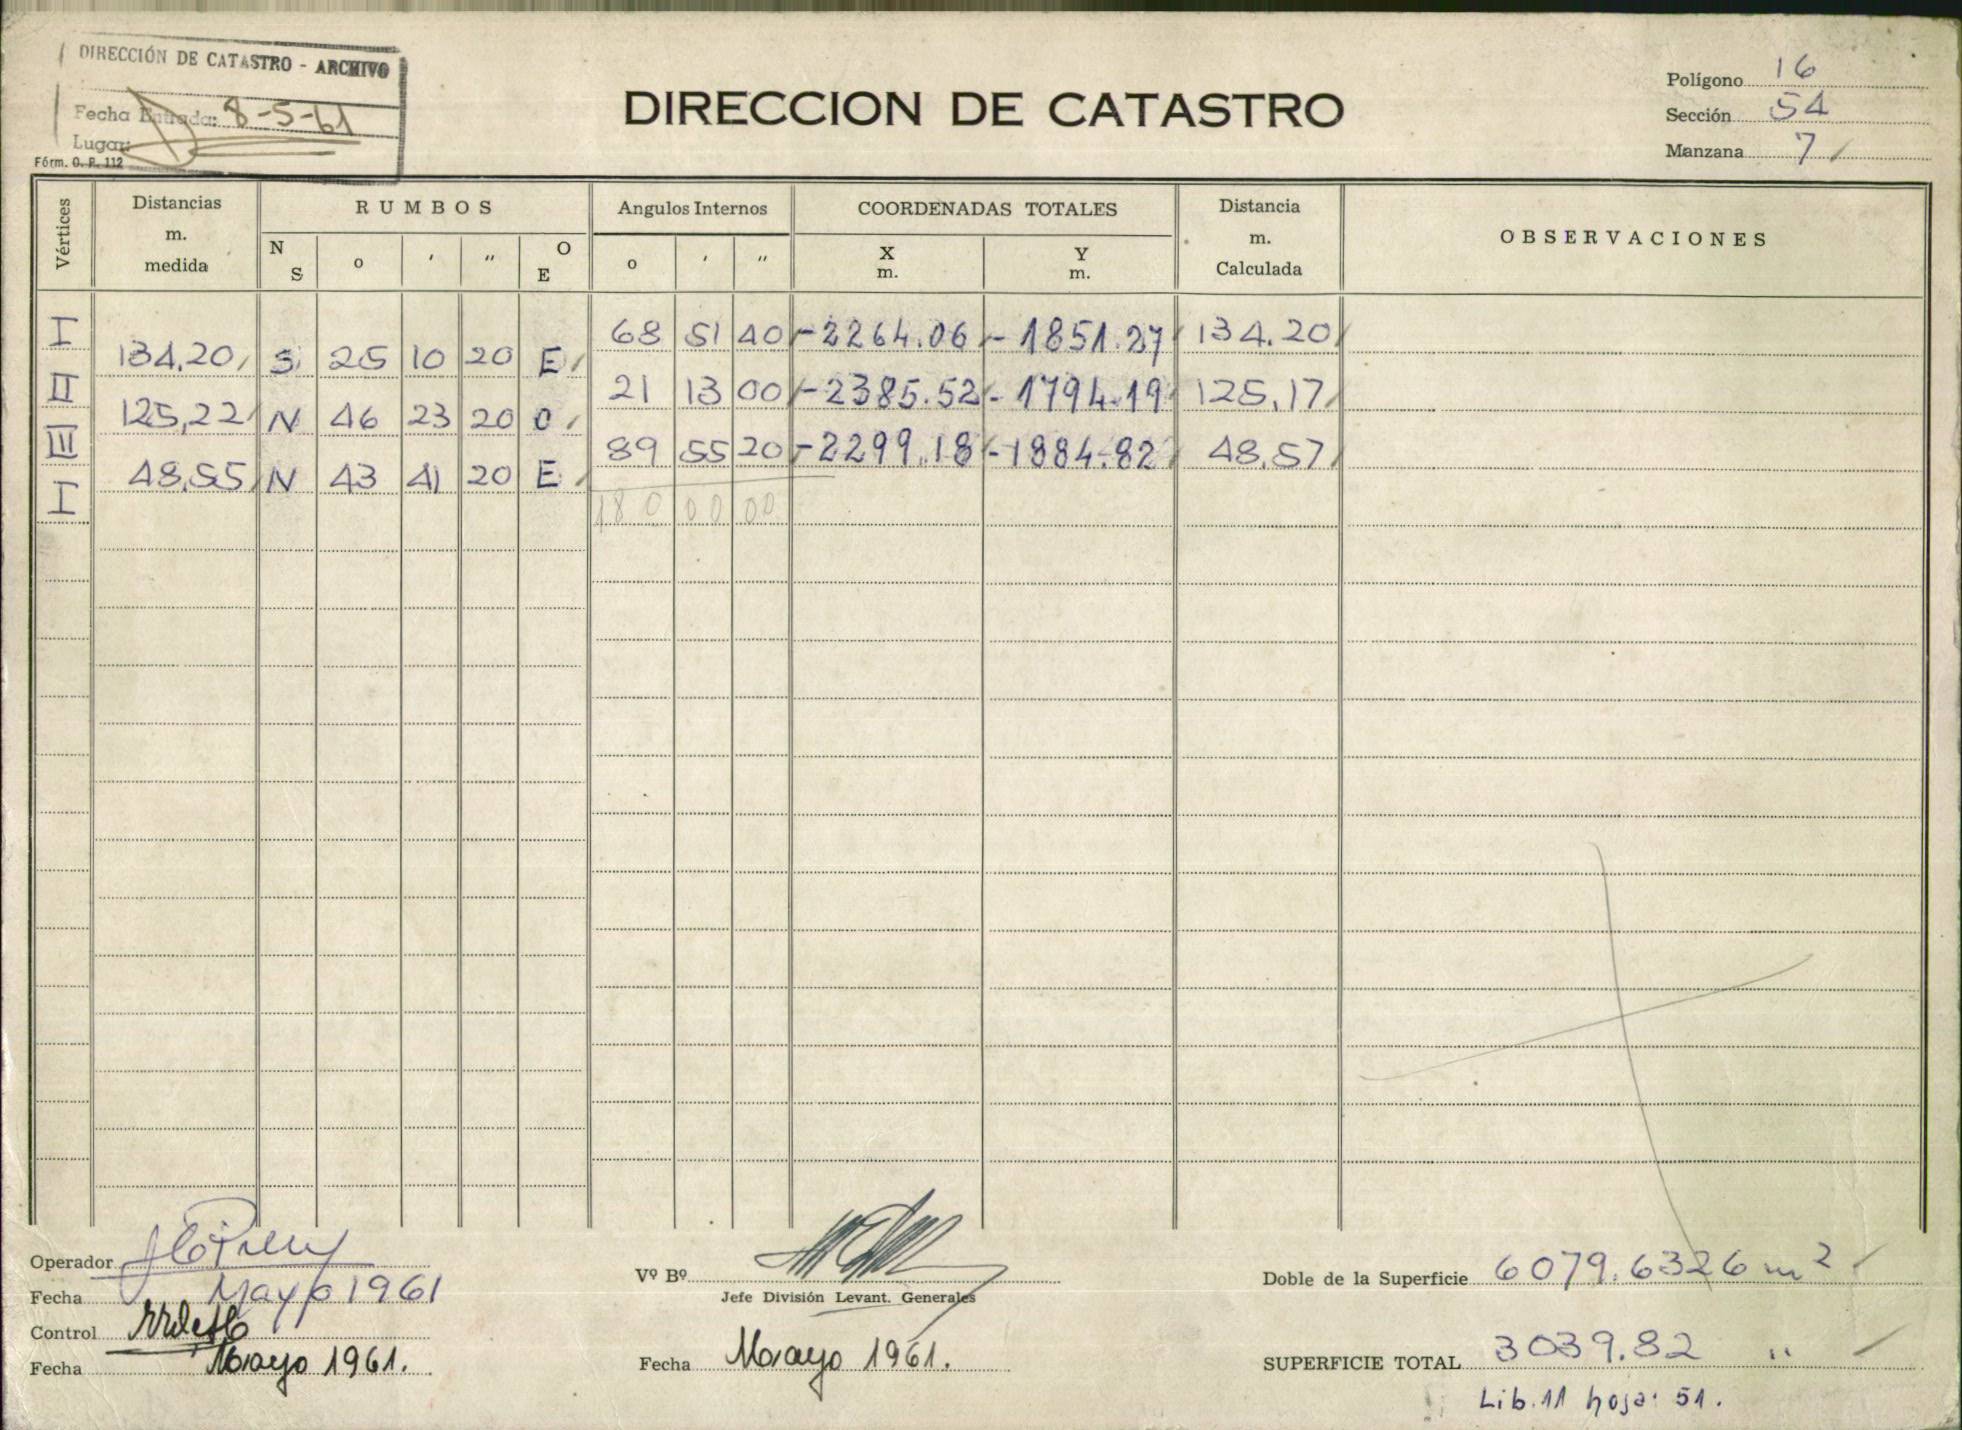 DIRECCIÓN DE CATASTRO - ARCHIVO
Fecha Entrada: 8-5-61
Lugar:
Fórm. O. P. 112
DIRECCION DE CATASTRO
Polígono 16
Sección 54
Manzana 7
Vértices
Distancias m. medida
RUMBOS
N S
o
'
"
O E
Angulos Internos
o
'
"
COORDENADAS TOTALES
X m.
Y m.
Distancia m. Calculada
OBSERVACIONES
I 68 51 40 -2264.06 -1851.27 134.20
134,20 S 25 10 20 E
II 21 13 00 -2385.52 -1794.19 125,17
125,22 N 46 23 20 O
III 89 55 20 -2299.18 -1884.82 48,57
48,55 N 43 41 20 E
I 180 00 00
Operador
Fecha Mayo 1961
Control
Fecha Mayo 1961.
Vº Bº
Jefe División Levant. Generales
Fecha Mayo 1961.
Doble de la Superficie 6079.6326 m2
SUPERFICIE TOTAL 3039.82 "
Lib. 11 hoja: 51.